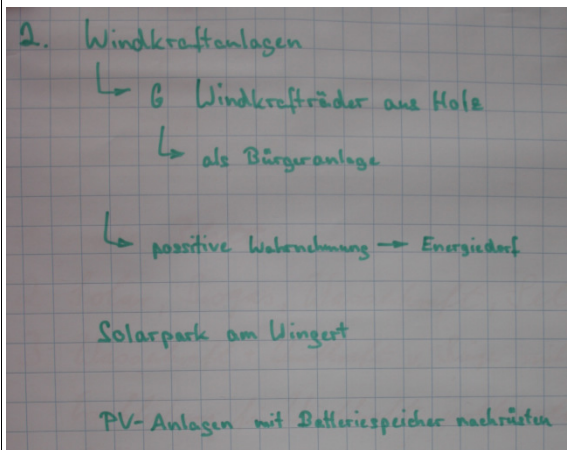 2. Windkraftanlagen
↳ 6 Windkrafträder aus Holz
↳ als Bürgeranlage
↳ possitive Wahrnehmung → Energiedorf
Solarpark am Wingert
PV-Anlagen mit Batteriespeicher nachrüsten